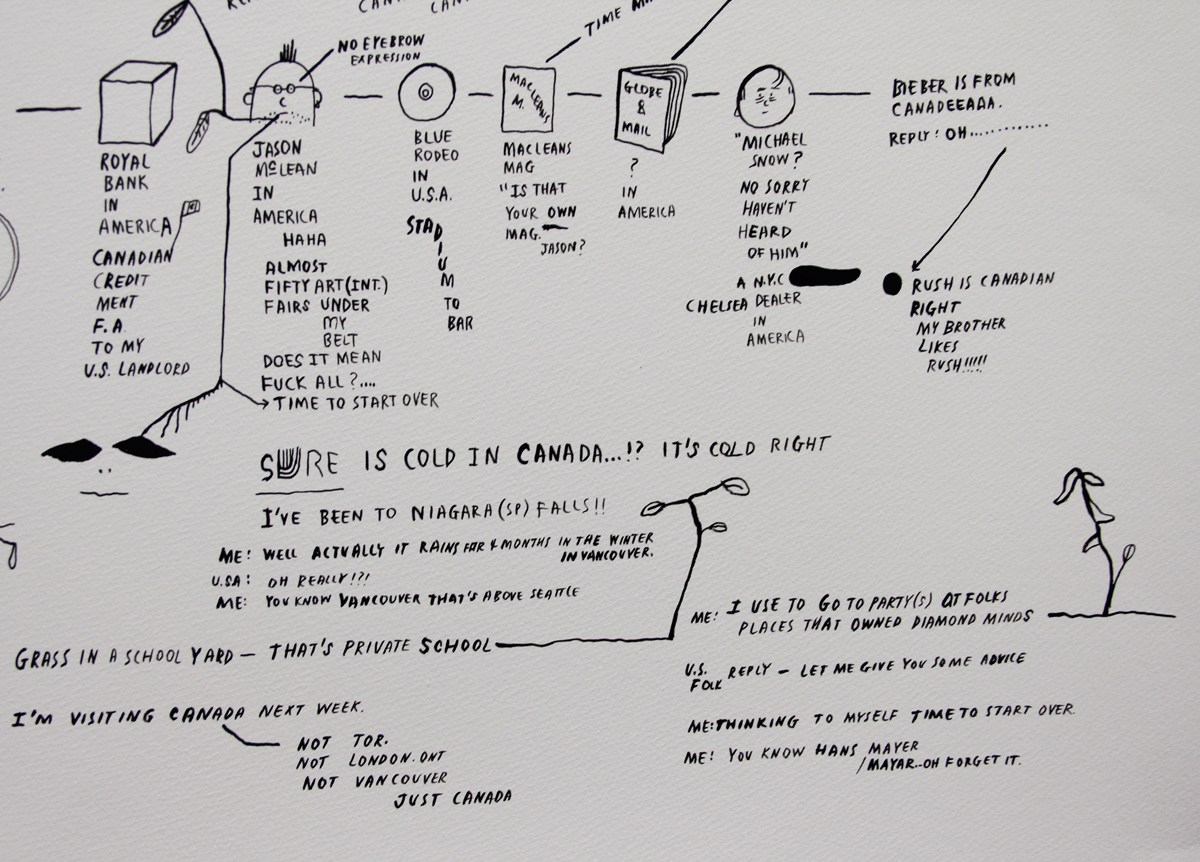 CAN
CAN
TIME M
NO EYEBROW
EXPRESSION
ROYAL
BANK
IN
AMERICA
CANADIAN
CREDIT
MENT
F.A.
TO MY
U.S. LANDLORD
JASON
McLEAN
IN
AMERICA
HAHA
ALMOST
FIFTY ART (INT.)
FAIRS UNDER
MY
BELT
DOES IT MEAN
FUCK ALL?....
TIME TO START OVER
BLUE
RODEO
IN
U.S.A.
STADIUM
TO
BAR
MACLEANS
M.
MACLEANS
MAG
"IS THAT
YOUR OWN
MAG.
JASON?
GLOBE
&
MAIL
?
IN
AMERICA
"MICHAEL
SNOW?
NO SORRY
HAVEN'T
HEARD
OF HIM"
A N.Y.C
CHELSEA DEALER
IN
AMERICA
BIEBER IS FROM
CANADEEADA.
REPLY! OH..............
RUSH IS CANADIAN
RIGHT
MY BROTHER
LIKES
RUSH!!!!!
SURE IS COLD IN CANADA...!? IT'S COLD RIGHT
I'VE BEEN TO NIAGARA (SP) FALLS!!
ME: WELL ACTUALLY IT RAINS FOR 4 MONTHS IN THE WINTER
IN VANCOUVER.
U.SA: OH REALLY!?!
ME: YOU KNOW VANCOUVER THAT'S ABOVE SEATTLE
GRASS IN A SCHOOL YARD — THAT'S PRIVATE SCHOOL
I'M VISITING CANADA NEXT WEEK.
NOT TOR.
NOT LONDON.ONT
NOT VANCOUVER
JUST CANADA
ME: I USE TO GO TO PARTY(S) AT FOLKS
PLACES THAT OWNED DIAMOND MINDS
U.S. FOLK REPLY — LET ME GIVE YOU SOME ADVICE
ME: THINKING TO MYSELF TIME TO START OVER.
ME: YOU KNOW HANS MAYER
/MAYAR..OH FORGET IT.